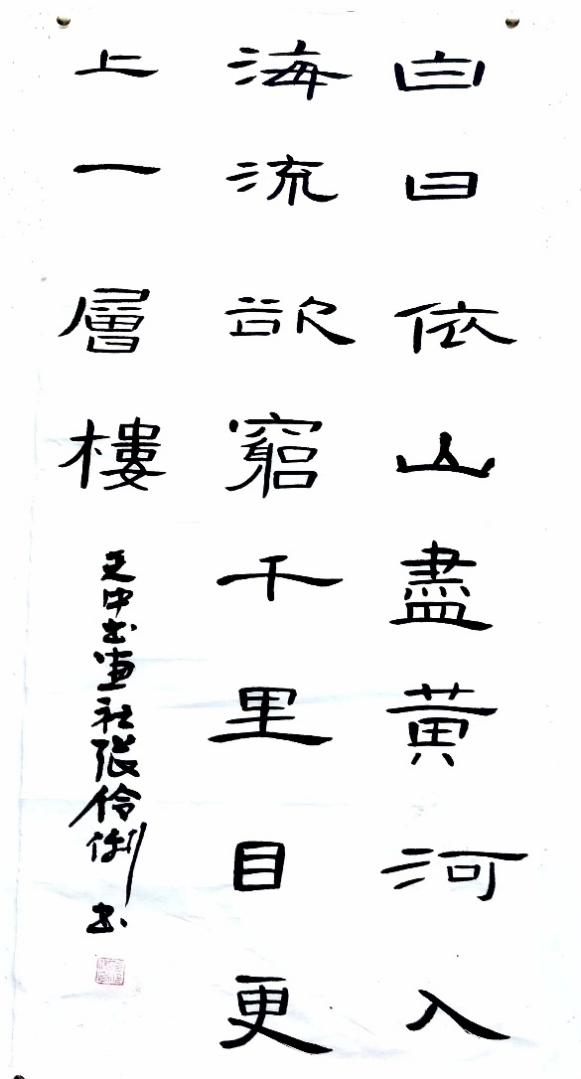 白日依山盡黃河入
海流欲窮千里目更
上一層樓
中書畫社張伶俐書